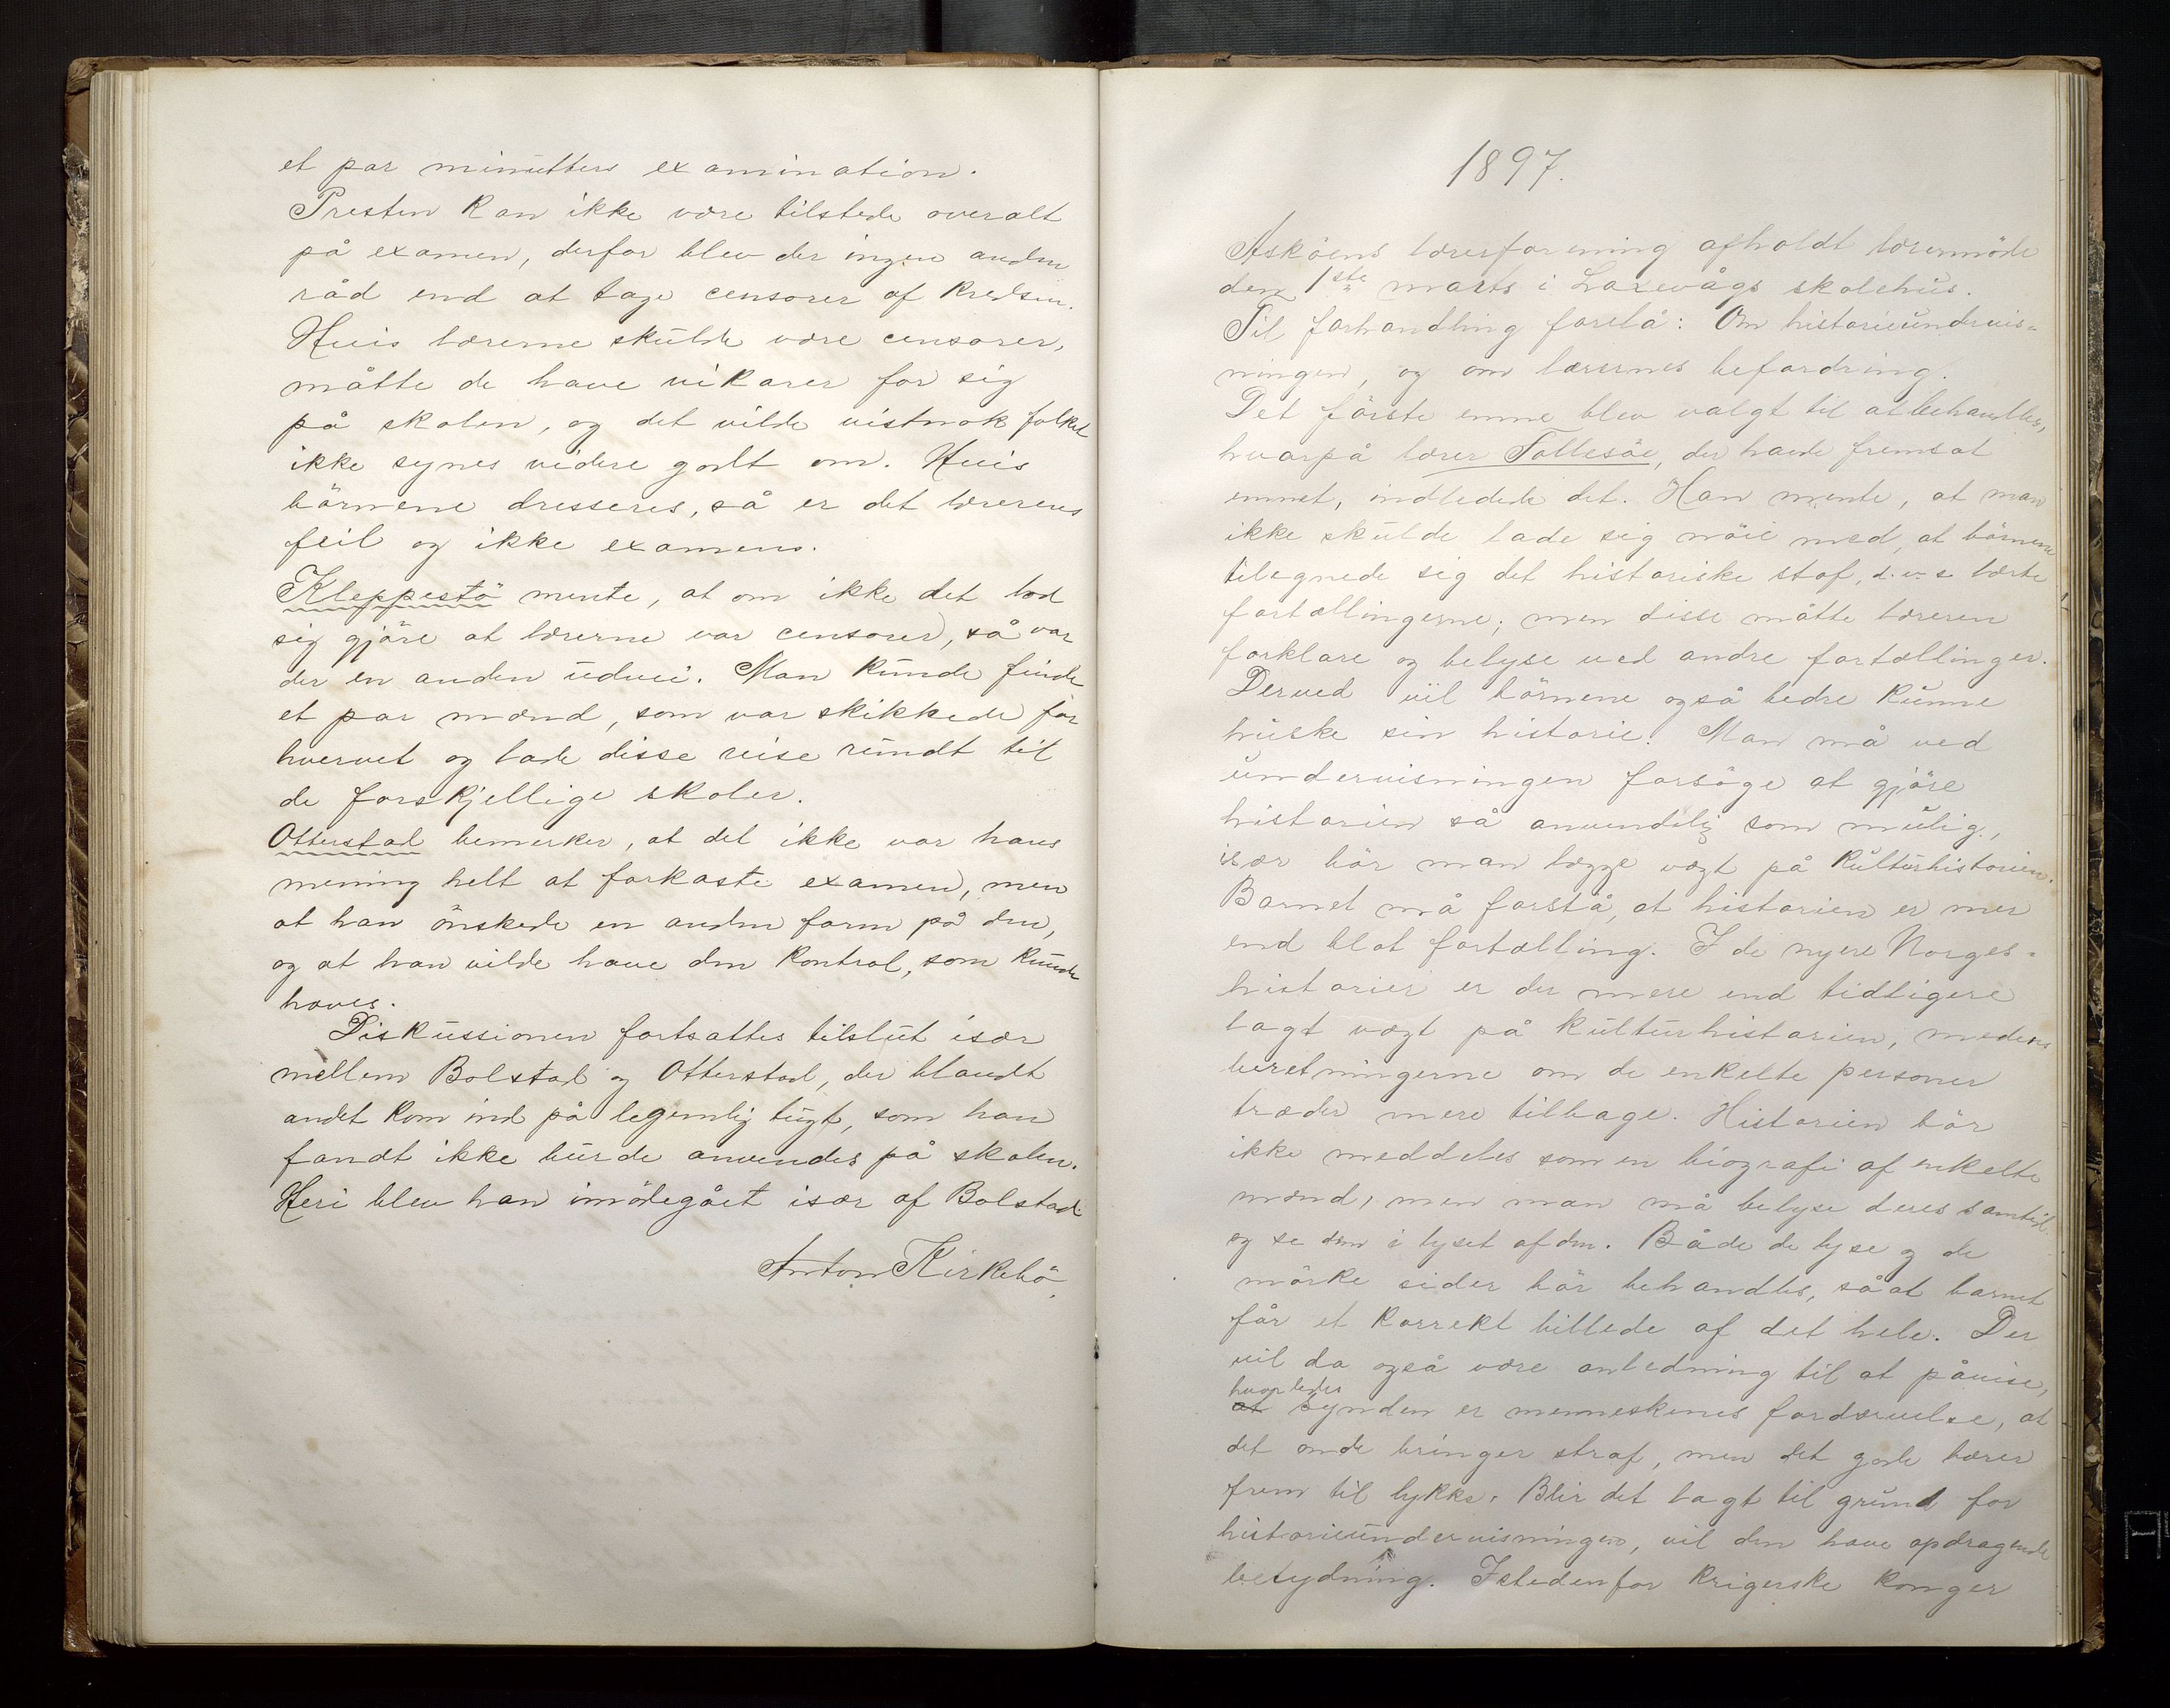 et par minutters examination.
Presten kan ikke være tilstede overalt
på examen, derfor blev der ingen anden
råd end at tage censorer af kredsen.
Hvis lærerne skulde være censorer,
måtte de have vikarer for sig
på skolen, og det vilde vistnok folket
ikke synes videre godt om. Hvis
börnene dresseres, så er det lærerens
feil og ikke examens.
Kleppestö mente, at om ikke det lod
sig gjöre at lærerne var censorer, så var
der en anden udvei. Man kunde finde
et par mænd, som var skikkede for
hvervet og lade disse reise rundt til
de forskjellige skoler.
Otterstad bemerker, at det ikke var hans
mening helt at forkaste examen, men
at han önskede en anden form på den,
og at han vilde have den kontrol, som kunde
haves.
Diskussionen fortsattes tilslut især
mellem Bolstad og Otterstad, der blandt
andet kom ind på legemlig tugt, som han
fandt ikke burde anvendes på skolen.
Heri blev han imödegået især af Bolstad.
Anton Kirkebö.
1897.
Asköens lærerforening afholdt lærermöde
den 1ste marts i Laxevågs skolehus.
Til forhandling forelå: Om historieundervis=
ningen, og om lærernes befordring.
Det förste emne blev valgt til at behandles,
hvorpå lærer Tollesöe, der havde fremsat
emnet, indledede det. Han mente, at man
ikke skulde lade sig nöie med, at börnene
tilegnede sig det historiske stof, d. v. s. lærte
fortællingerne; men disse måtte læreren
forklare og belyse ved andre fortællinger.
Derved vil börnene også bedre kunne
huske sin historie. Man må ved
undervisningen forsöge at gjöre
historien så anvendelig som mulig,
især bör man lægge vægt på kulturhistorien.
Barnet må forstå, at historien er mer
end blot fortælling. I de nyere Norges=
historier er der mere end tidligere
lagt vægt på kulturhistorien, medens
beretningerne om de enkelte personer
træder mere tilbage. Historien bör
ikke meddeles som en biografi af enkelte
mænd, men man må belyse deres samtid
og se dem i lyset af den. Både de lyse og de
mörke sider bör behandles, så at barnet
får et korrekt billede af det hele. Der
vil da også være anledning til at påvise,
hvorledes
at synden er menneskenes fordærvelse, at
det onde bringer straf, men det gode bærer
frem til lykke. Blir det lagt til grund for
historieundervisningen, vil den have opdragende
betydning. Istedenfor krigerske konger